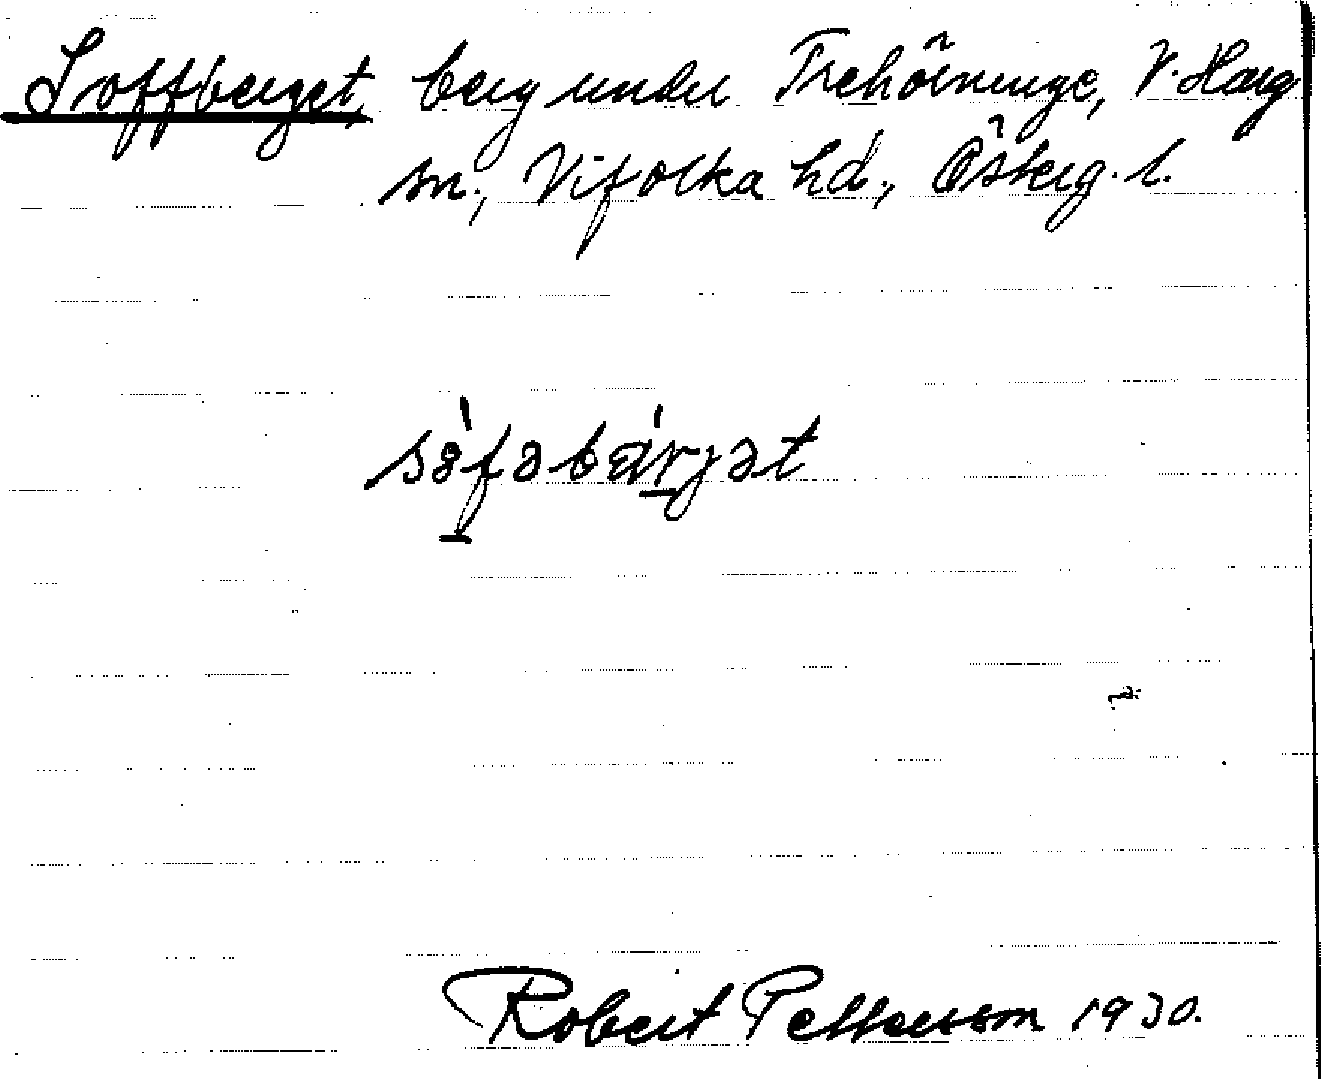 Soffberget, berg under Trehörninge, V. Harg
sn., Vifolka hd., Österg. l.
Robert Pettersson 1930.